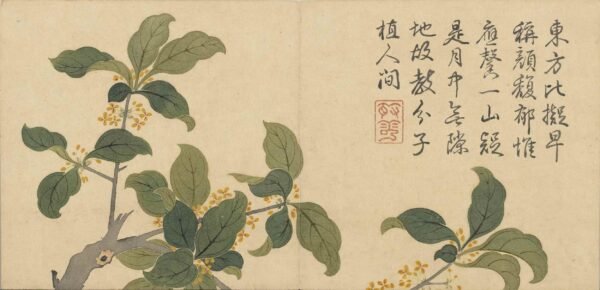 東方比擬早
稱顔馥郁惟
應馨一山疑
是月中無隙
地故教分子
植人間